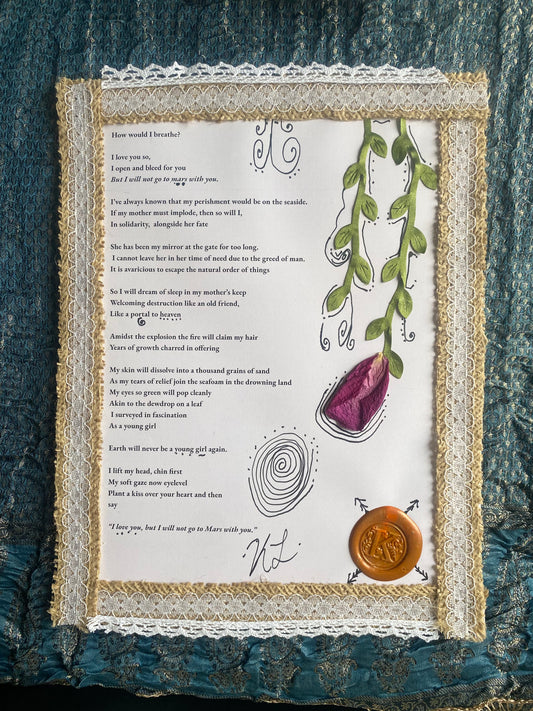 How would I breathe?
I love you so,
I open and bleed for you
But I will not go to mars with you.
I've always known that my perishment would be on the seaside.
If my mother must implode, then so will I,
In solidarity, alongside her fate
She has been my mirror at the gate for too long.
I cannot leave her in her time of need due to the greed of man.
It is avaricious to escape the natural order of things
So I will dream of sleep in my mother's keep
Welcoming destruction like an old friend,
Like a portal to heaven
Amidst the explosion the fire will claim my hair
Years of growth charred in offering
My skin will dissolve into a thousand grains of sand
As my tears of relief join the seafoam in the drowning land
My eyes so green will pop cleanly
Akin to the dewdrop on a leaf
I surveyed in fascination
As a young girl
Earth will never be a young girl again.
I lift my head, chin first
My soft gaze now eyelevel
Plant a kiss over your heart and then
say
“I love you, but I will not go to Mars with you.”
KL.